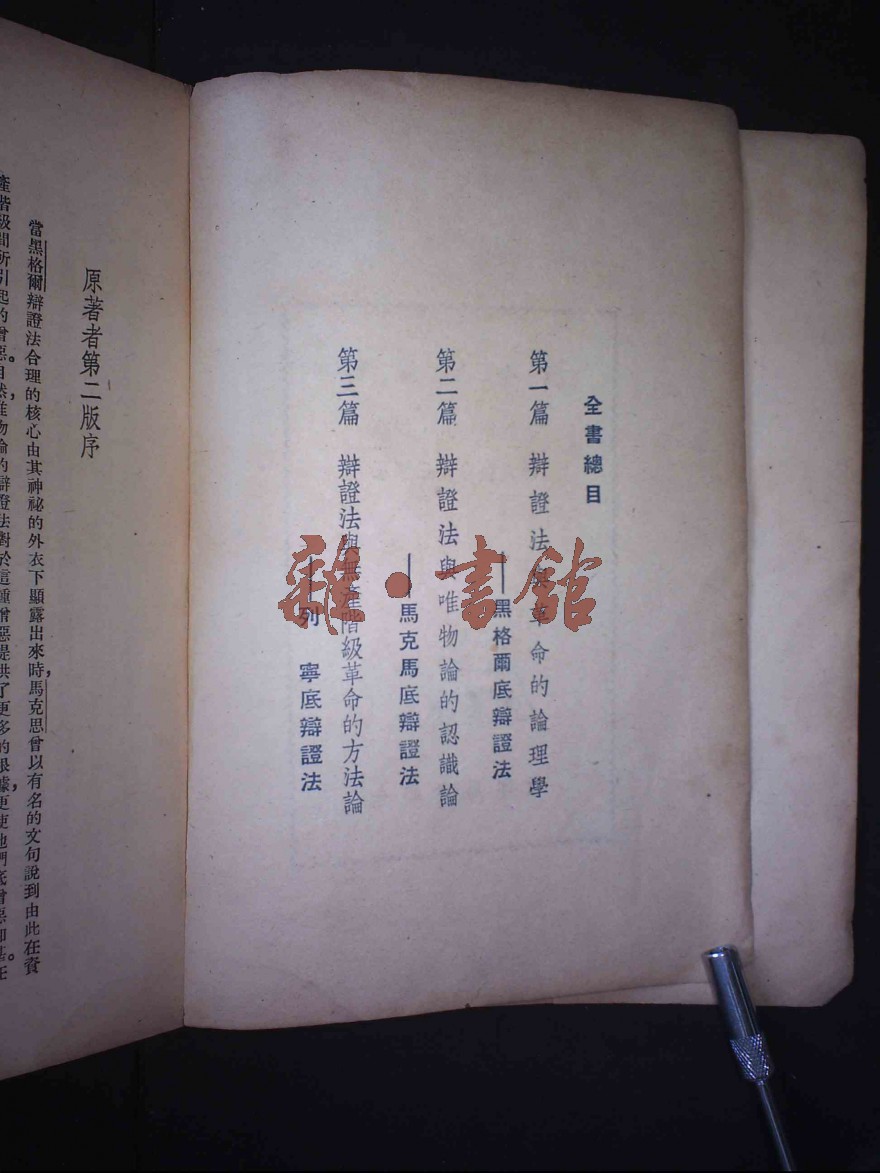 全書總目
第一篇 辯證法與革命的論理學
——黑格爾底辯證法
第二篇 辯證法與唯物論的認識論
——馬克馬底辯證法
第三篇 辯證法與無產階級革命的方法論
——列 寧底辯證法
雜·書館
原著者第二版序
當黑格爾辯證法合理的核心由其神祕的外衣下顯露出來時，馬克思曾以有名的文句說到由此在資
產階級間所引起的憎惡。自然，唯物論的辯證法對於這種憎惡提供了更多的根據，更使他們底憎惡